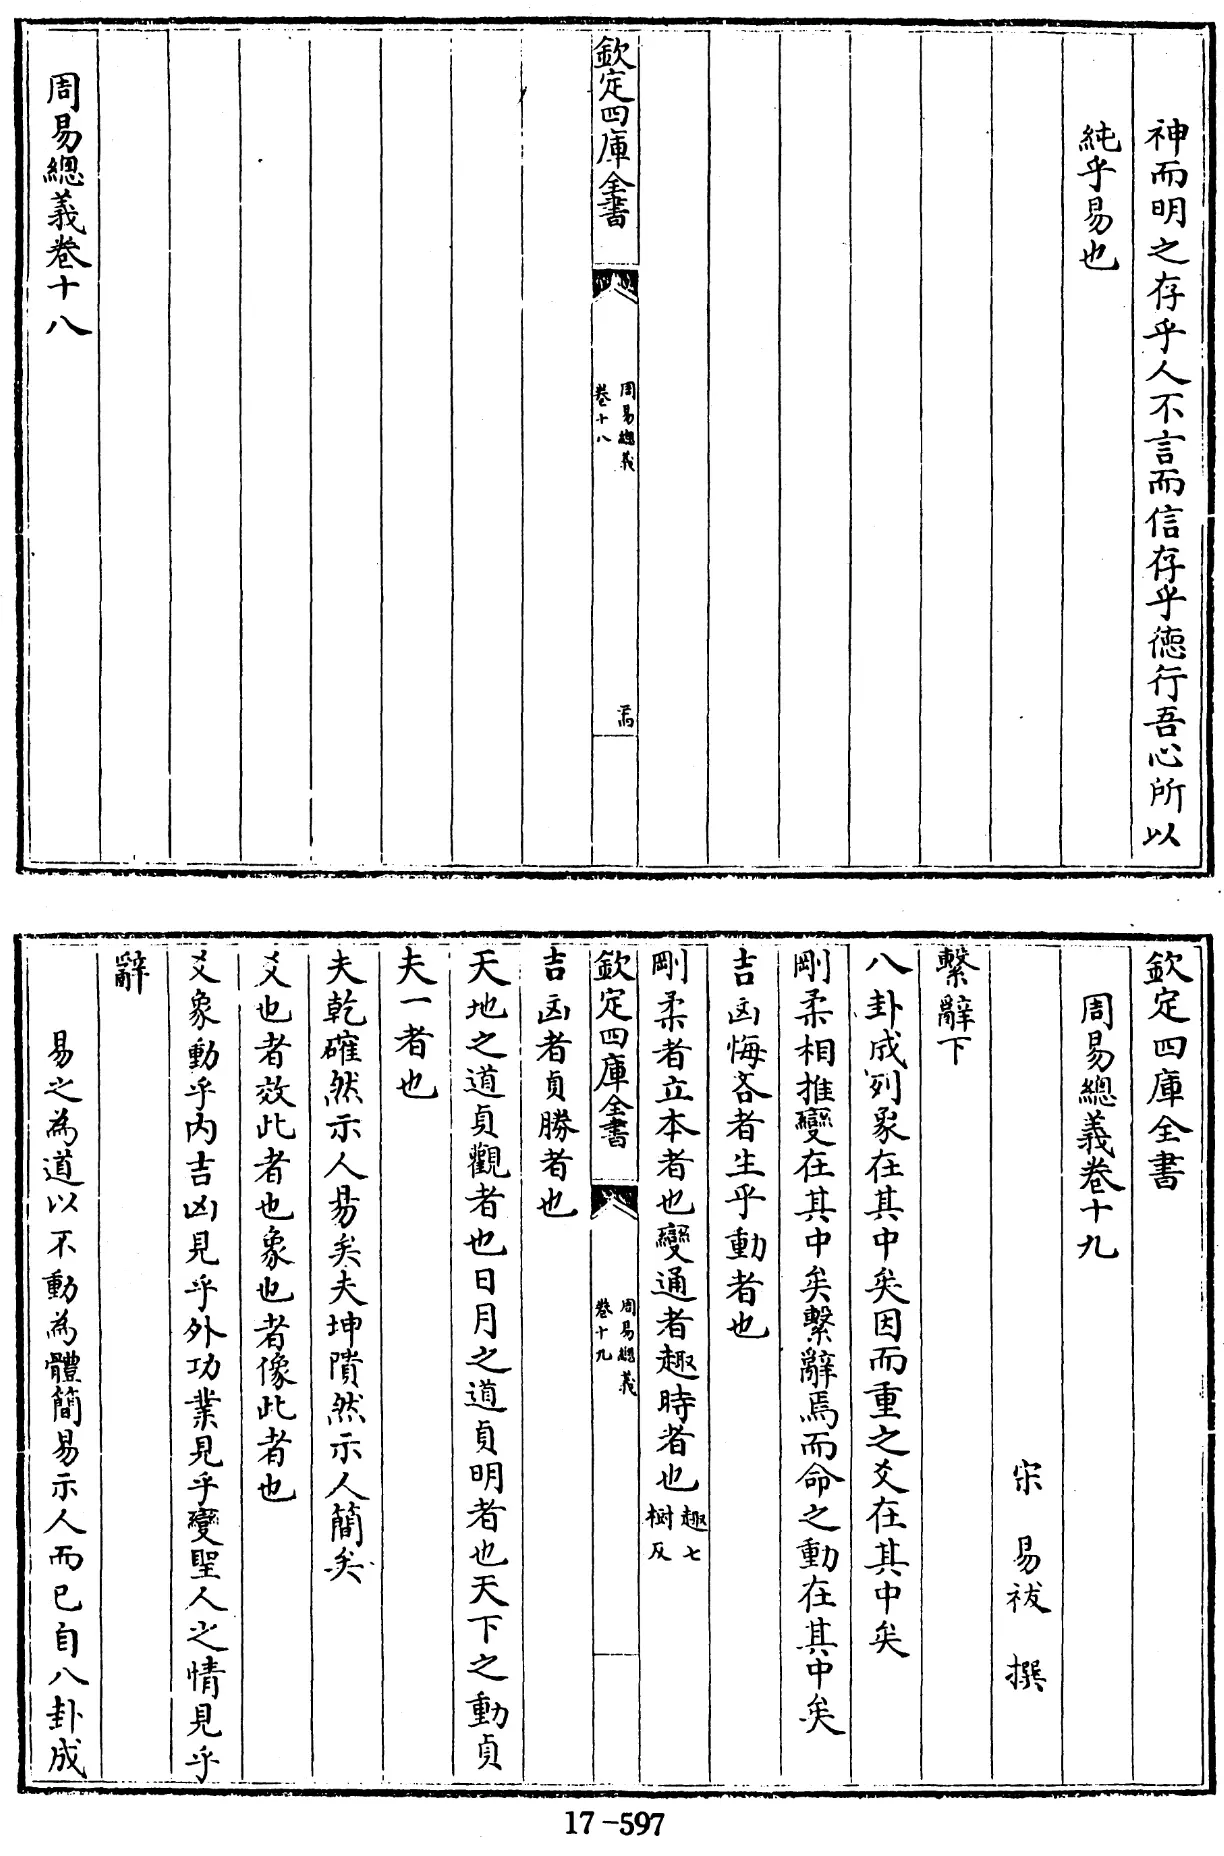 神而明之存乎人不言而信存乎徳行吾心所以
純乎易也
欽定四庫全書
周易總義
卷十八
周易總義卷十八
欽定四庫全書
周易總義卷十九
宋 易祓 撰
繫辭下
八卦成列象在其中矣因而重之爻在其中矣
剛柔相推變在其中矣繫辭焉而命之動在其中矣
吉凶悔吝者生乎動者也
剛柔者立本者也變通者趣時者也趣七
樹反
欽定四庫全書
周易總義
卷十九
吉凶者貞勝者也
天地之道貞觀者也日月之道貞明者也天下之動貞
夫一者也
夫乾確然示人易矣夫坤隤然示人簡矣
爻也者效此者也象也者像此者也
爻象動乎内吉凶見乎外功業見乎變聖人之情見乎
辭
易之為道以不動為體簡易示人而已自八卦成
17-597